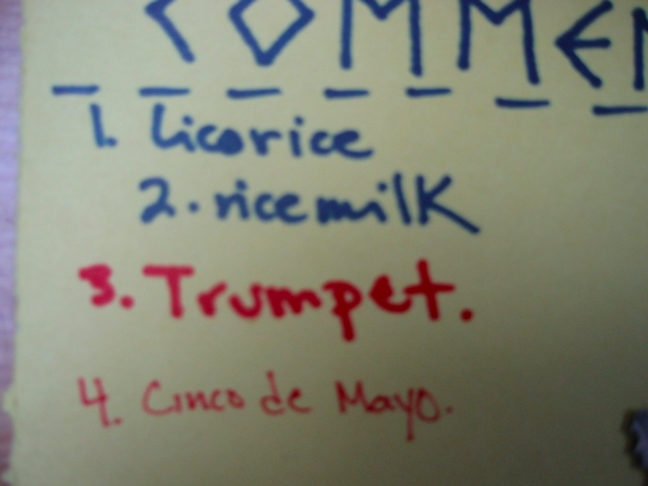 COMMEN
1. Licorice
2. rice milk
3. Trumpet.
4. Cinco de Mayo.